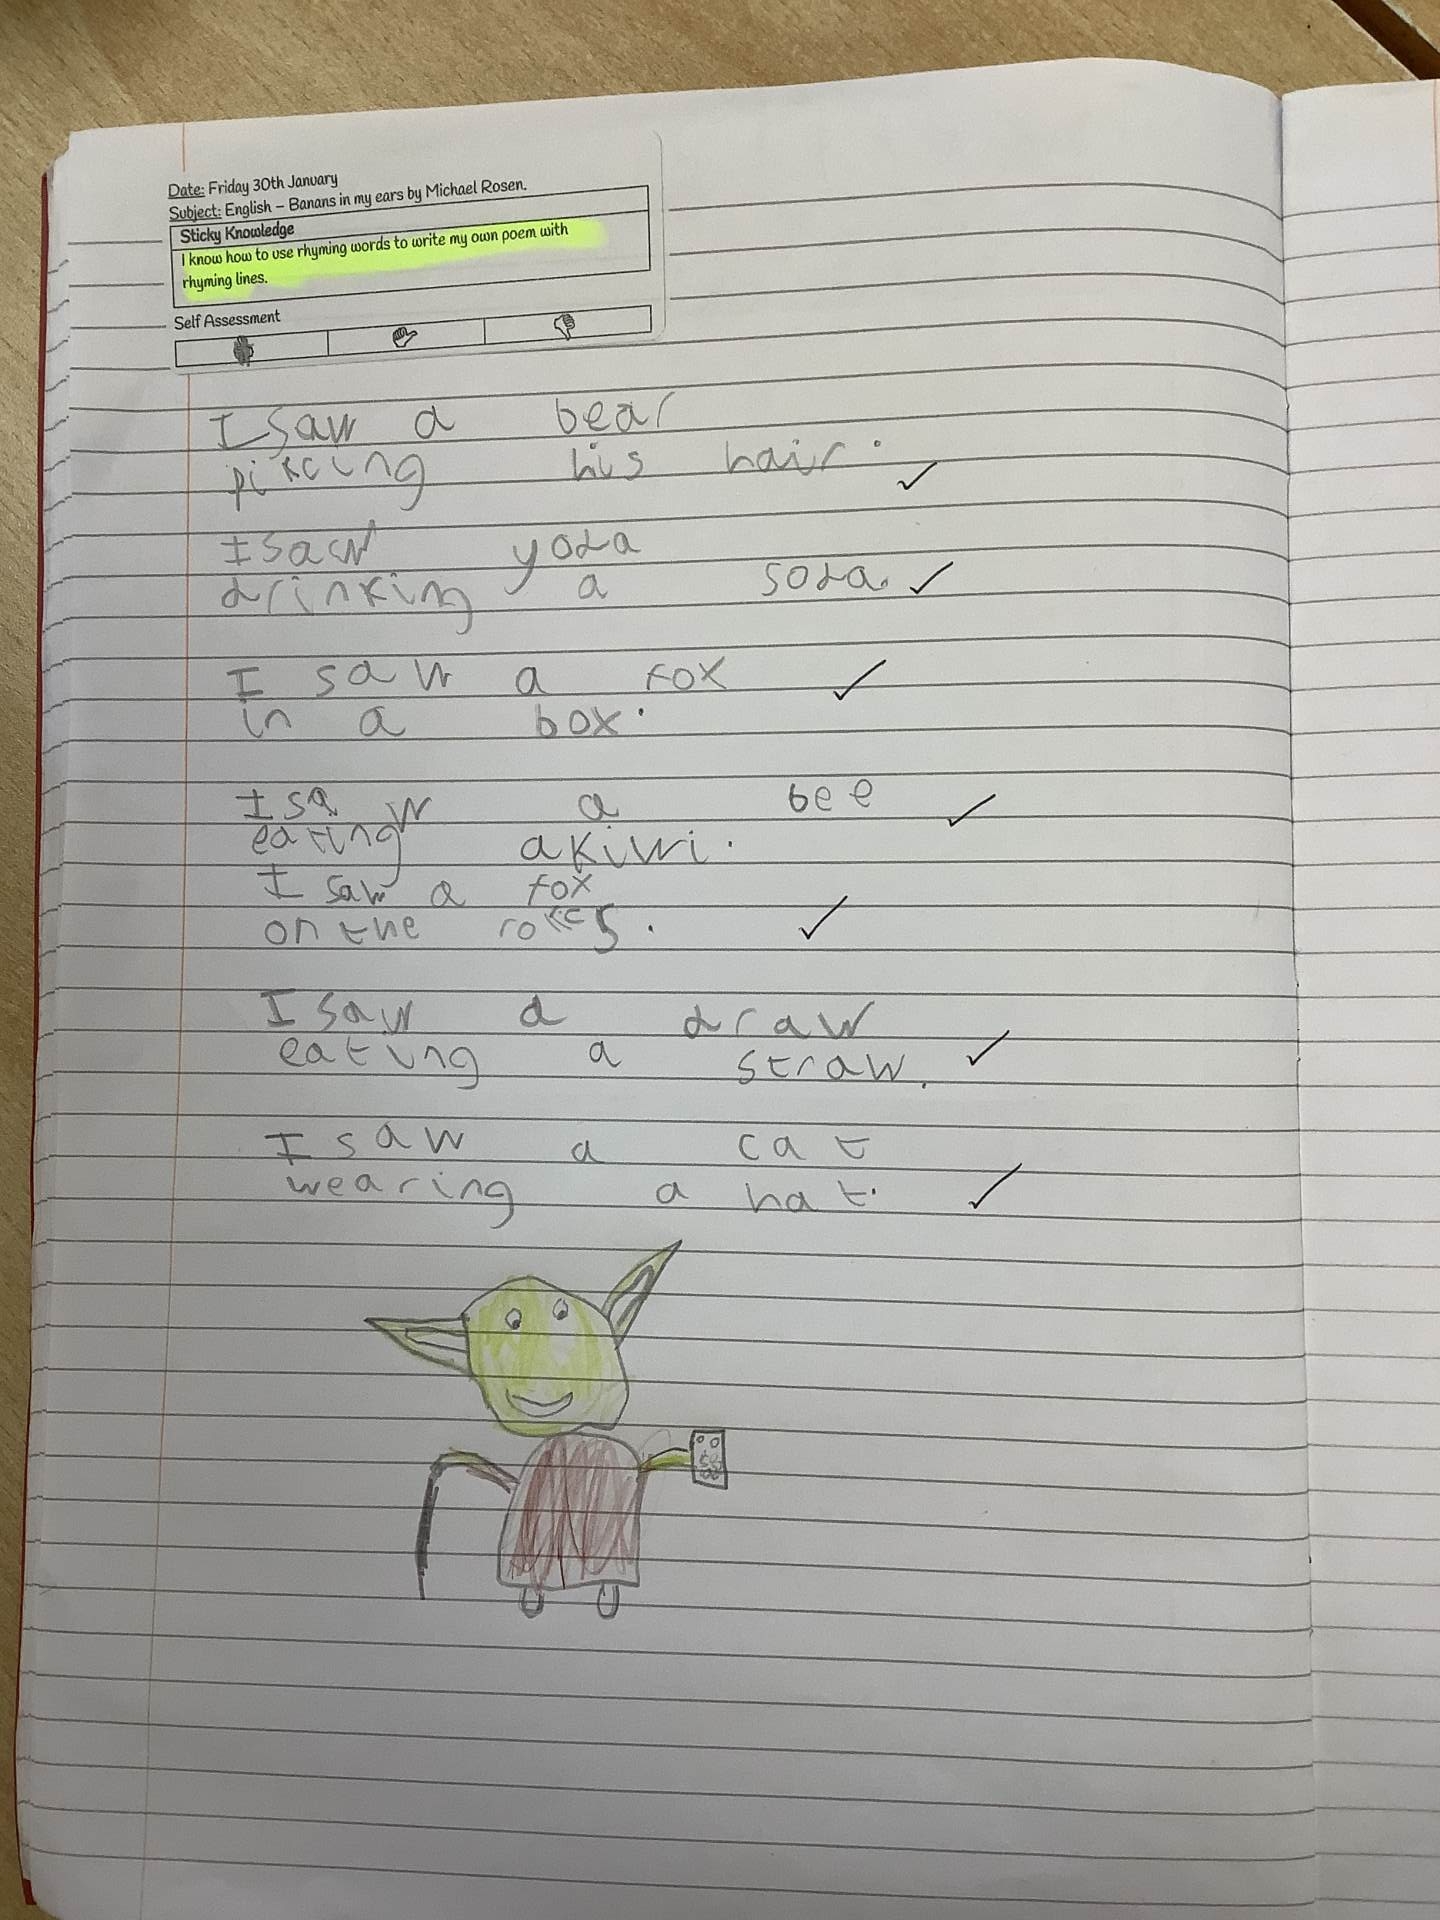 Date: Friday 30th January
Subject: English – Banans in my ears by Michael Rosen.
Sticky Knowledge
I know how to use rhyming words to write my own poem with
rhyming lines.
Self Assessment
I saw a bear
his hair.
I saw yoda
drinking a soda.
I saw a fox
in a box.
I saw a bee
eating a kiwi.
I saw a fox
on the
I saw a draw
eating a straw.
I saw a cat
wearing a hat.